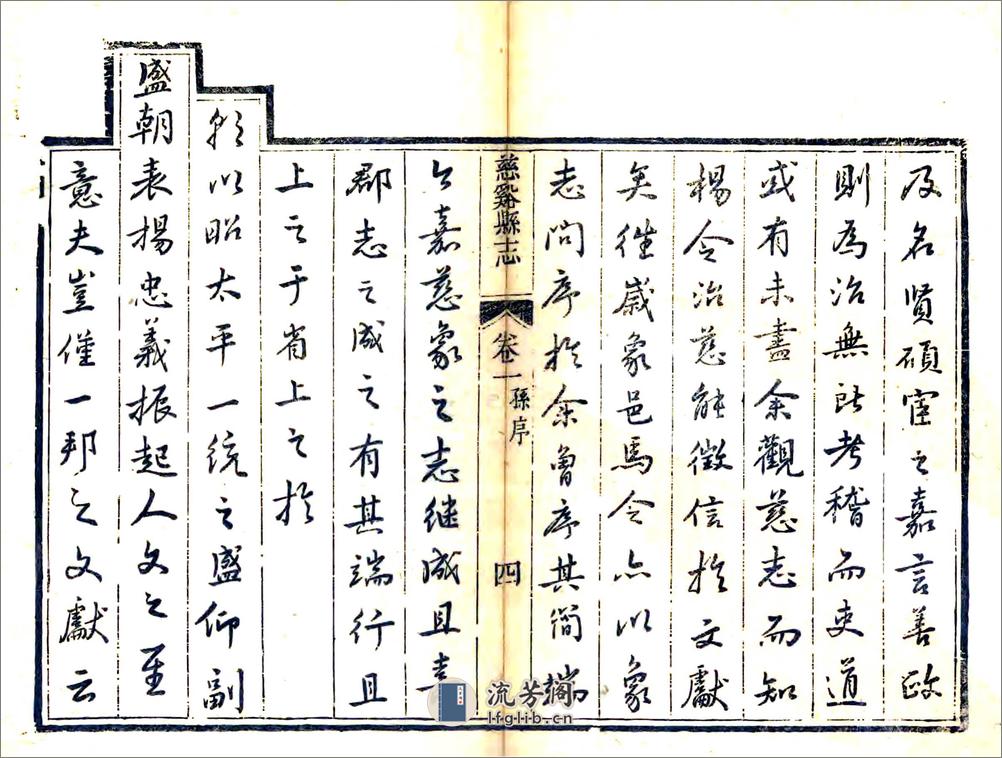 及名賢碩宦之嘉言善政
則為治無所考稽而吏道
或有未盡余觀慈志而知
楊令治慈能徵信於文獻
矣往歲象邑馬令亦以象
志問序於余曾序其簡端
慈谿縣志
卷一
孫序
四
今嘉慈象之志继成且喜
郡志之成之有其端行且
上之于省上之於
朝以昭太平一统之盛仰副
盛朝表揚忠義振起人文之至
意夫豈僅一邦之文獻云
流芳阁
lfglib.cn